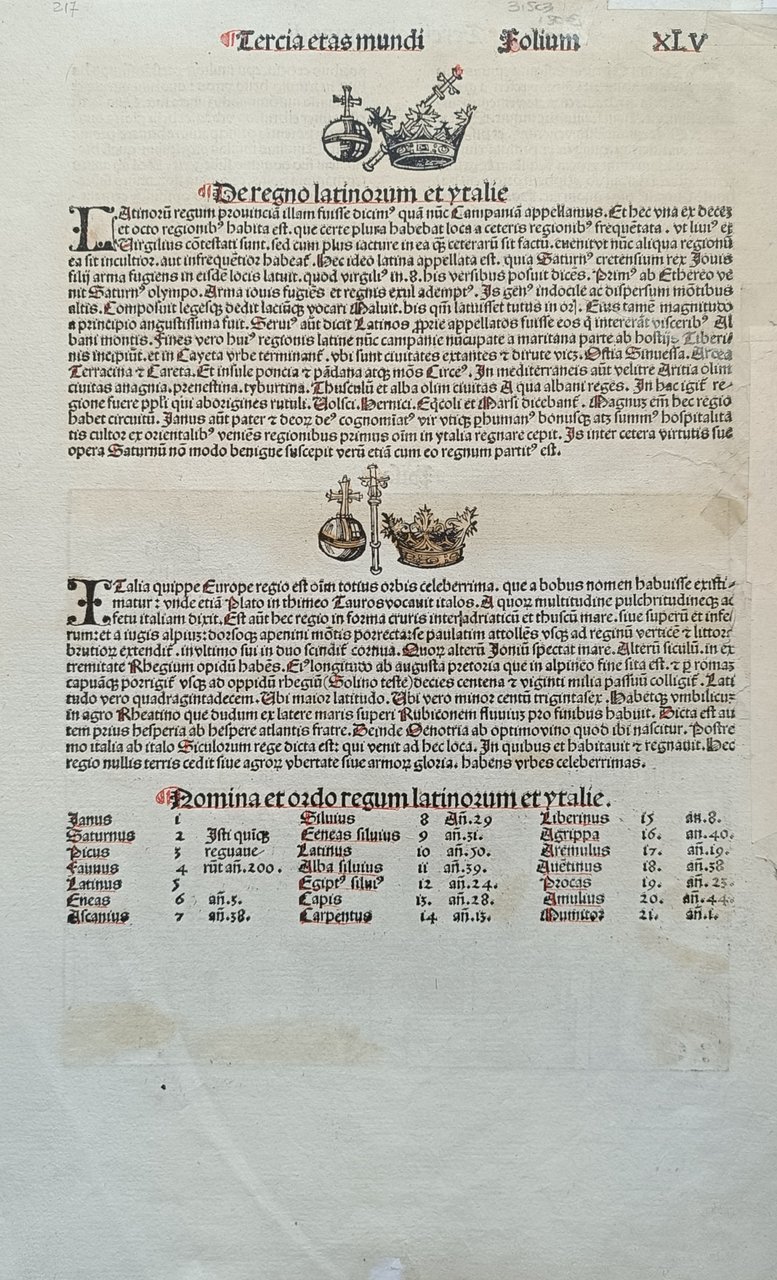 217
Tercia etas mundi Folium XLV
De regno latinorum et ytalie
LAtinorũ regum prouinciã illam fuisse dicimꝰ quã nũc Campaniã appellamus. Et hec vna ex decẽ
et octo regionibꝰ habita est. que certe plura habebat loca a ceteris regionibꝰ frequẽtata. vt liuiꝰ et
Virgilius cõtestati sunt. sed cum plus iacture in ea qꝫ ceterarũ sit factũ. euenit vt nũc aliqua regionũ
ea sit incultior. aut infrequẽtior habeat̃. Hec ideo latina appellata est. quia Saturnꝰ cretensium rex Jouis
filij arma fugiens in eisdẽ locis latuit. quod virgiliꝰ in. 8. his versibus posuit dicẽs. Primꝰ ab Ethereo ve
nit Saturnꝰ olympo. Arma iouis fugiẽs et regnis exul ademptꝰ. Is genꝰ indocile ac dispersum mõtibus
altis. Composuit legesqꝫ dedit laciũqꝫ vocari Maluit. his qm̃ latuisset tutus in orꝭ. Eius tamẽ magnitudo
a principio angustissima fuit. Seruiꝰ aũt dicit Latinos ꝓprie appellatos fuisse eos q̃ intererãt visceribꝰ Al
bani montis. Fines vero huiꝰ regionis latine nũc campanie nũcupate a maritana parte ab hostijs Tiberi
nis incipiũt. et in Cayeta vrbe terminant̃. vbi sunt ciuitates extantes ⁊ dirute vicꝫ. Ostia Sinuessa. Arcea
Terracina ⁊ Careta. Et insule poncia ⁊ pãdana atqꝫ mõs Circeꝰ. In mediterraneis aũt velitre Aritia olim
ciuitas anagnia. prenestina. tyburtina. Thusculũ et alba olim ciuitas A qua albani reges. In hac igit̃ re⸗
gione fuere ppl̃i qui aborigines rutuli. Volsci. Hernici. Eq̃coli et Marsi dicebant̃. Magnus em̃ hec regio
habet circuitũ. Janus aũt pater ⁊ deoꝝ deꝰ cognomiatꝰ vir vtiqꝫ ꝑhumanꝰ bonusqꝫ atꝫ summꝰ hospitalita
tis cultor ex orientalibꝰ veniẽs regionibus primus oĩm in ytalia regnare cepit. Is inter cetera virtutis sue
opera Saturnũ nõ modo benigne suscepit verũ etiã cum eo regnum partitꝰ est.
ITalia quippe Europe regio est oĩm totius orbis celeberrima. que a bobus nomen habuisse existi⸗
matur: vnde etiã Plato in thimeo Tauros vocauit italos. A quoꝝ multitudine pulchritudineqꝫ ac
fetu italiam dixit. Est aũt hec regio in forma cruris inter adriaticũ et thuscũ mare. siue superũ et infe
rum: et a iugis alpiũ: dorsoqꝫ apenini mõtis porrecta: se paulatim attollẽs vsqꝫ ad reginũ verticẽ ⁊ littore
brutior extendit̃. in vltimo sui in duo scindit̃ cornua. Quoꝝ alterũ Joniũ spectat mare. Alterũ siculũ. in ex
tremitate Rhegium opidũ habẽs. Eiꝰ longitudo ab augusta pretoria que in alpineo fine sita est. ⁊ ꝑ romaꝫ
capuãqꝫ porrigit̃ vsqꝫ ad oppidũ rhegiũ (Solino teste) decies centena ⁊ viginti milia passuũ colligit̃. Lati
tudo vero quadragintadecem. Vbi maior latitudo. Vbi vero minor centũ trigintasex. Habetqꝫ vmbilicuꝫ
in agro Rheatino que dudum ex latere maris superi Rubiconem fluuiuꝫ pro finibus habuit. Dicta est au
tem prius hesperia ab hespere atlantis fratre. Deinde Oenotria ab optimo vino quod ibi nascitur. Postre
mo italia ab italo Siculorum rege dicta est: qui venit ad hec loca. In quibus et habitauit ⁊ regnauit. Hec
regio nullis terris cedit siue agroꝝ vbertate siue armoꝝ gloria. habens vrbes celeberrimas.
Nomina et ordo regum latinorum et ytalie.
Janus 1 Siluius 8 Añ.29 Liberinus 15 añ.8.
Saturnus 2 Isti quiqꝫ Eeneas siluius 9 añ.31. Agrippa 16. añ.40.
Picus 3 regnaue Latinus 10 añ.50. Aremulus 17. añ.19.
Faunus 4 rũt añ.200. Alba siluius 11 añ.39. Auẽtinus 18. añ.38
Latinus 5 Egiptꝰ siluiꝰ 12 añ.24. Procas 19. añ.23.
Eneas 6 añ.3. Capis 13. añ.28. Amulius 20. añ.44.
Ascanius 7 añ.38. Carpentus 14 añ.13. Numitor 21. añ.1.